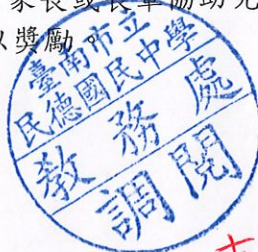 家長或長輩協助
以獎勵。
臺南市立
民德國民中學
教務處
調閱